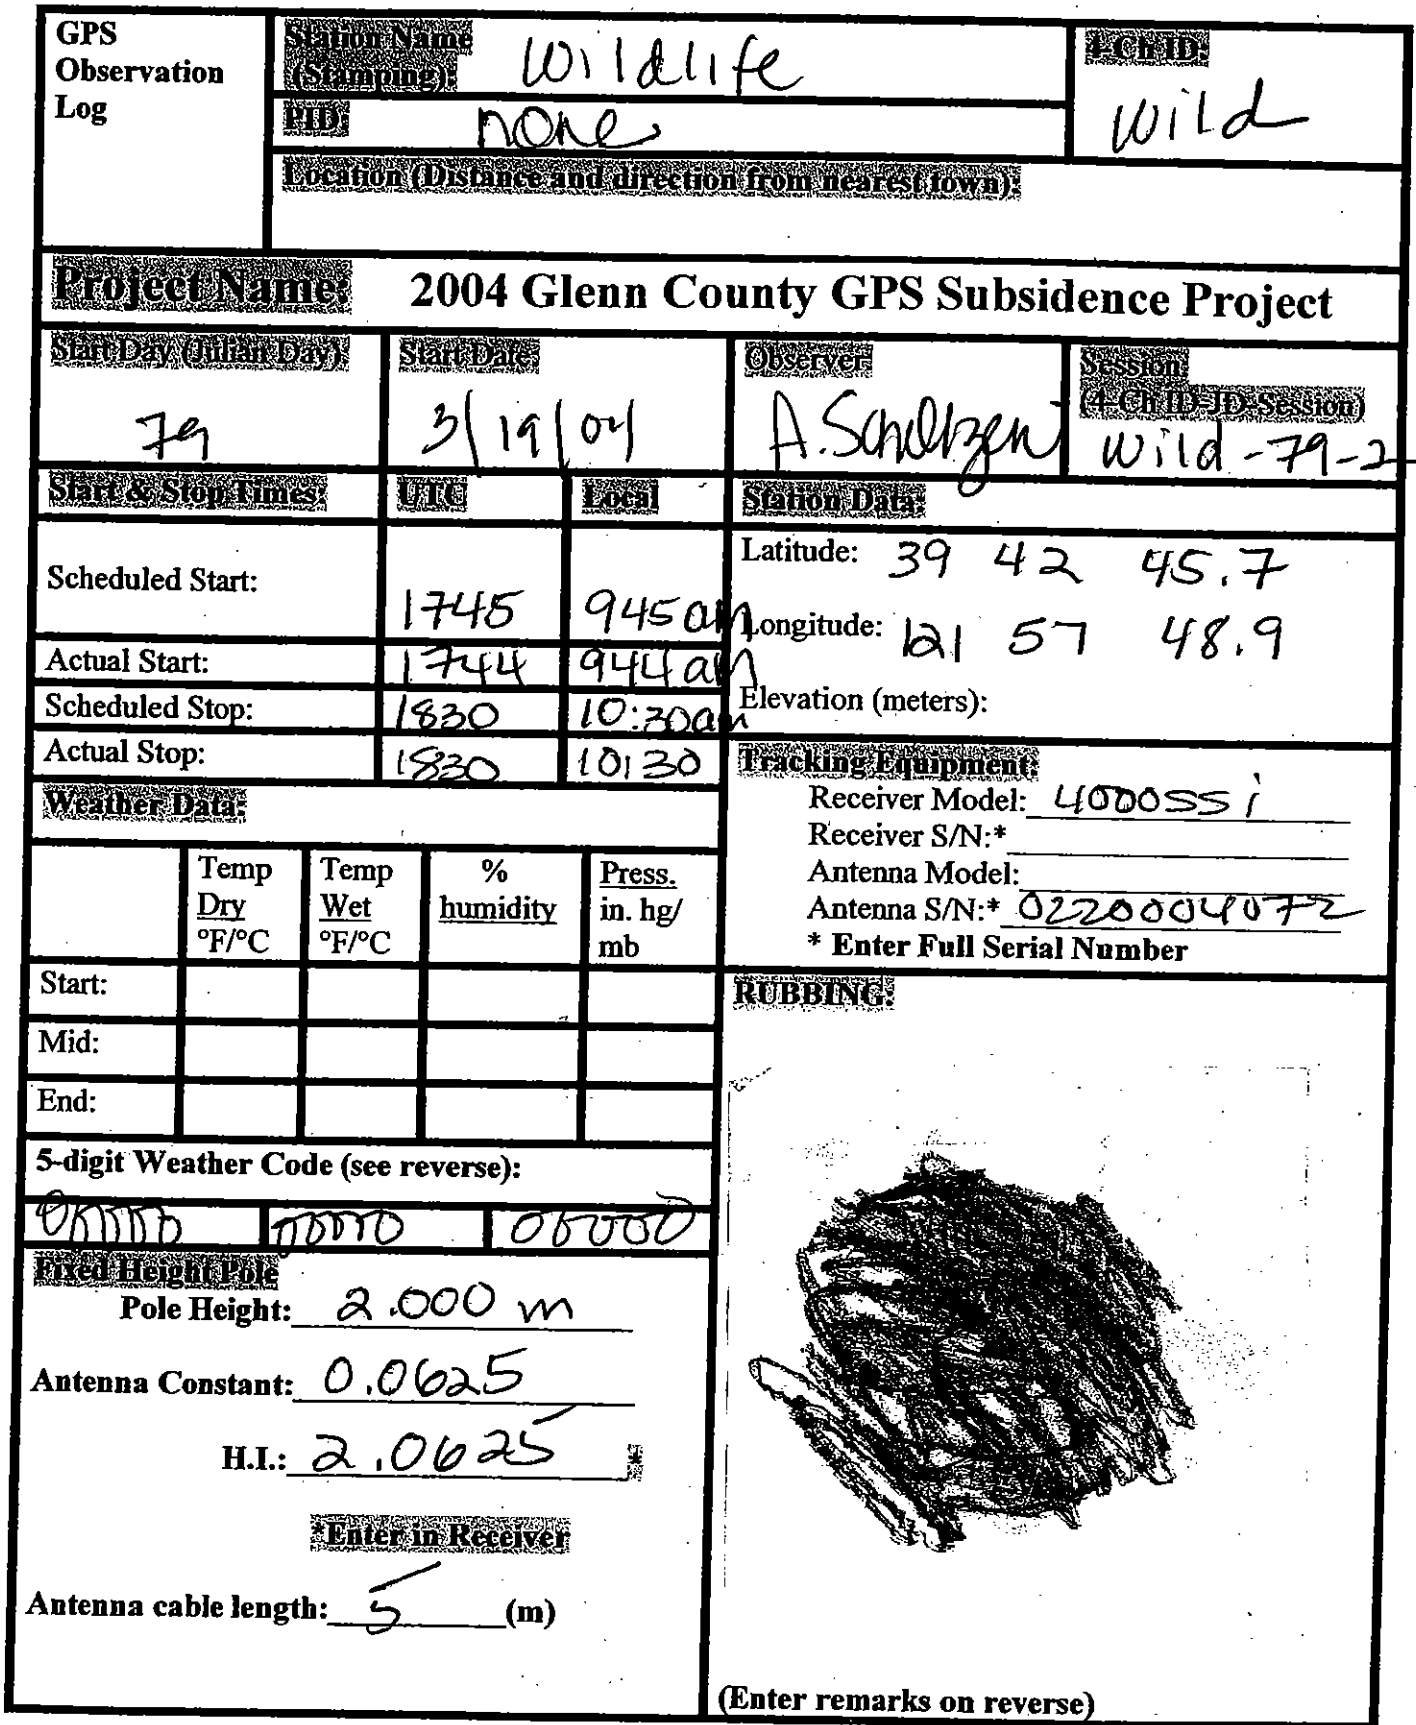 GPS
Observation
Log
Station Name
(Stamping): Wildlife
PID: none
4-Ch ID:
Wild
Location (Distance and direction from nearest town):
Project Name: 2004 Glenn County GPS Subsidence Project
Start Day (Julian Day)
79
Start Date:
3/19/04
Observer
A.
Session:
(4-Ch ID-JD-Session)
Wild-79-2
Start & Stop Times: UTC Local
Scheduled Start: 1745 945 am
Actual Start: 1744 944 am
Scheduled Stop: 1830 10:30am
Actual Stop: 1830 10:30
Station Data:
Latitude: 39 42 45.7
Longitude: 121 57 48.9
Elevation (meters):
Weather Data:
Temp Dry °F/°C
Temp Wet °F/°C
% humidity
Press. in. hg/ mb
Start:
Mid:
End:
Tracking Equipment:
Receiver Model: 4000SSi
Receiver S/N:*
Antenna Model:
Antenna S/N:* 0220004072
* Enter Full Serial Number
5-digit Weather Code (see reverse):
00000 00000 00000
Fixed Height Pole
Pole Height: 2.000 m
Antenna Constant: 0.0625
H.I.: 2.0625 *
*Enter in Receiver
Antenna cable length: 5 (m)
RUBBING:
(Enter remarks on reverse)